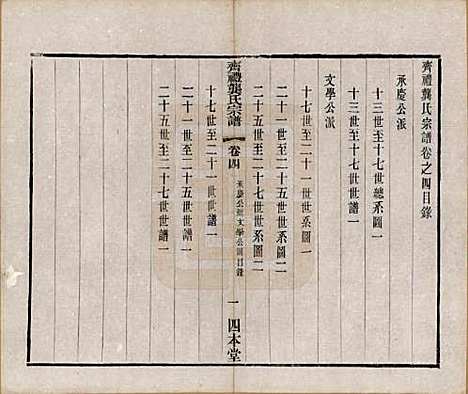 齊禮龔氏宗譜卷之四目錄
承慶公派
十三世至十七世總系圖一
十三世至十七世世譜一
文學公派
十七世至二十一世系圖一
二十一世至二十五世系圖二
二十五世至二十七世系圖二
齊禮龔氏宗譜
卷四
承慶公派文學公派目錄
一
四本堂
十七世至二十一世世譜一
二十一世至二十五世世譜一
二十五世至二十七世世譜一